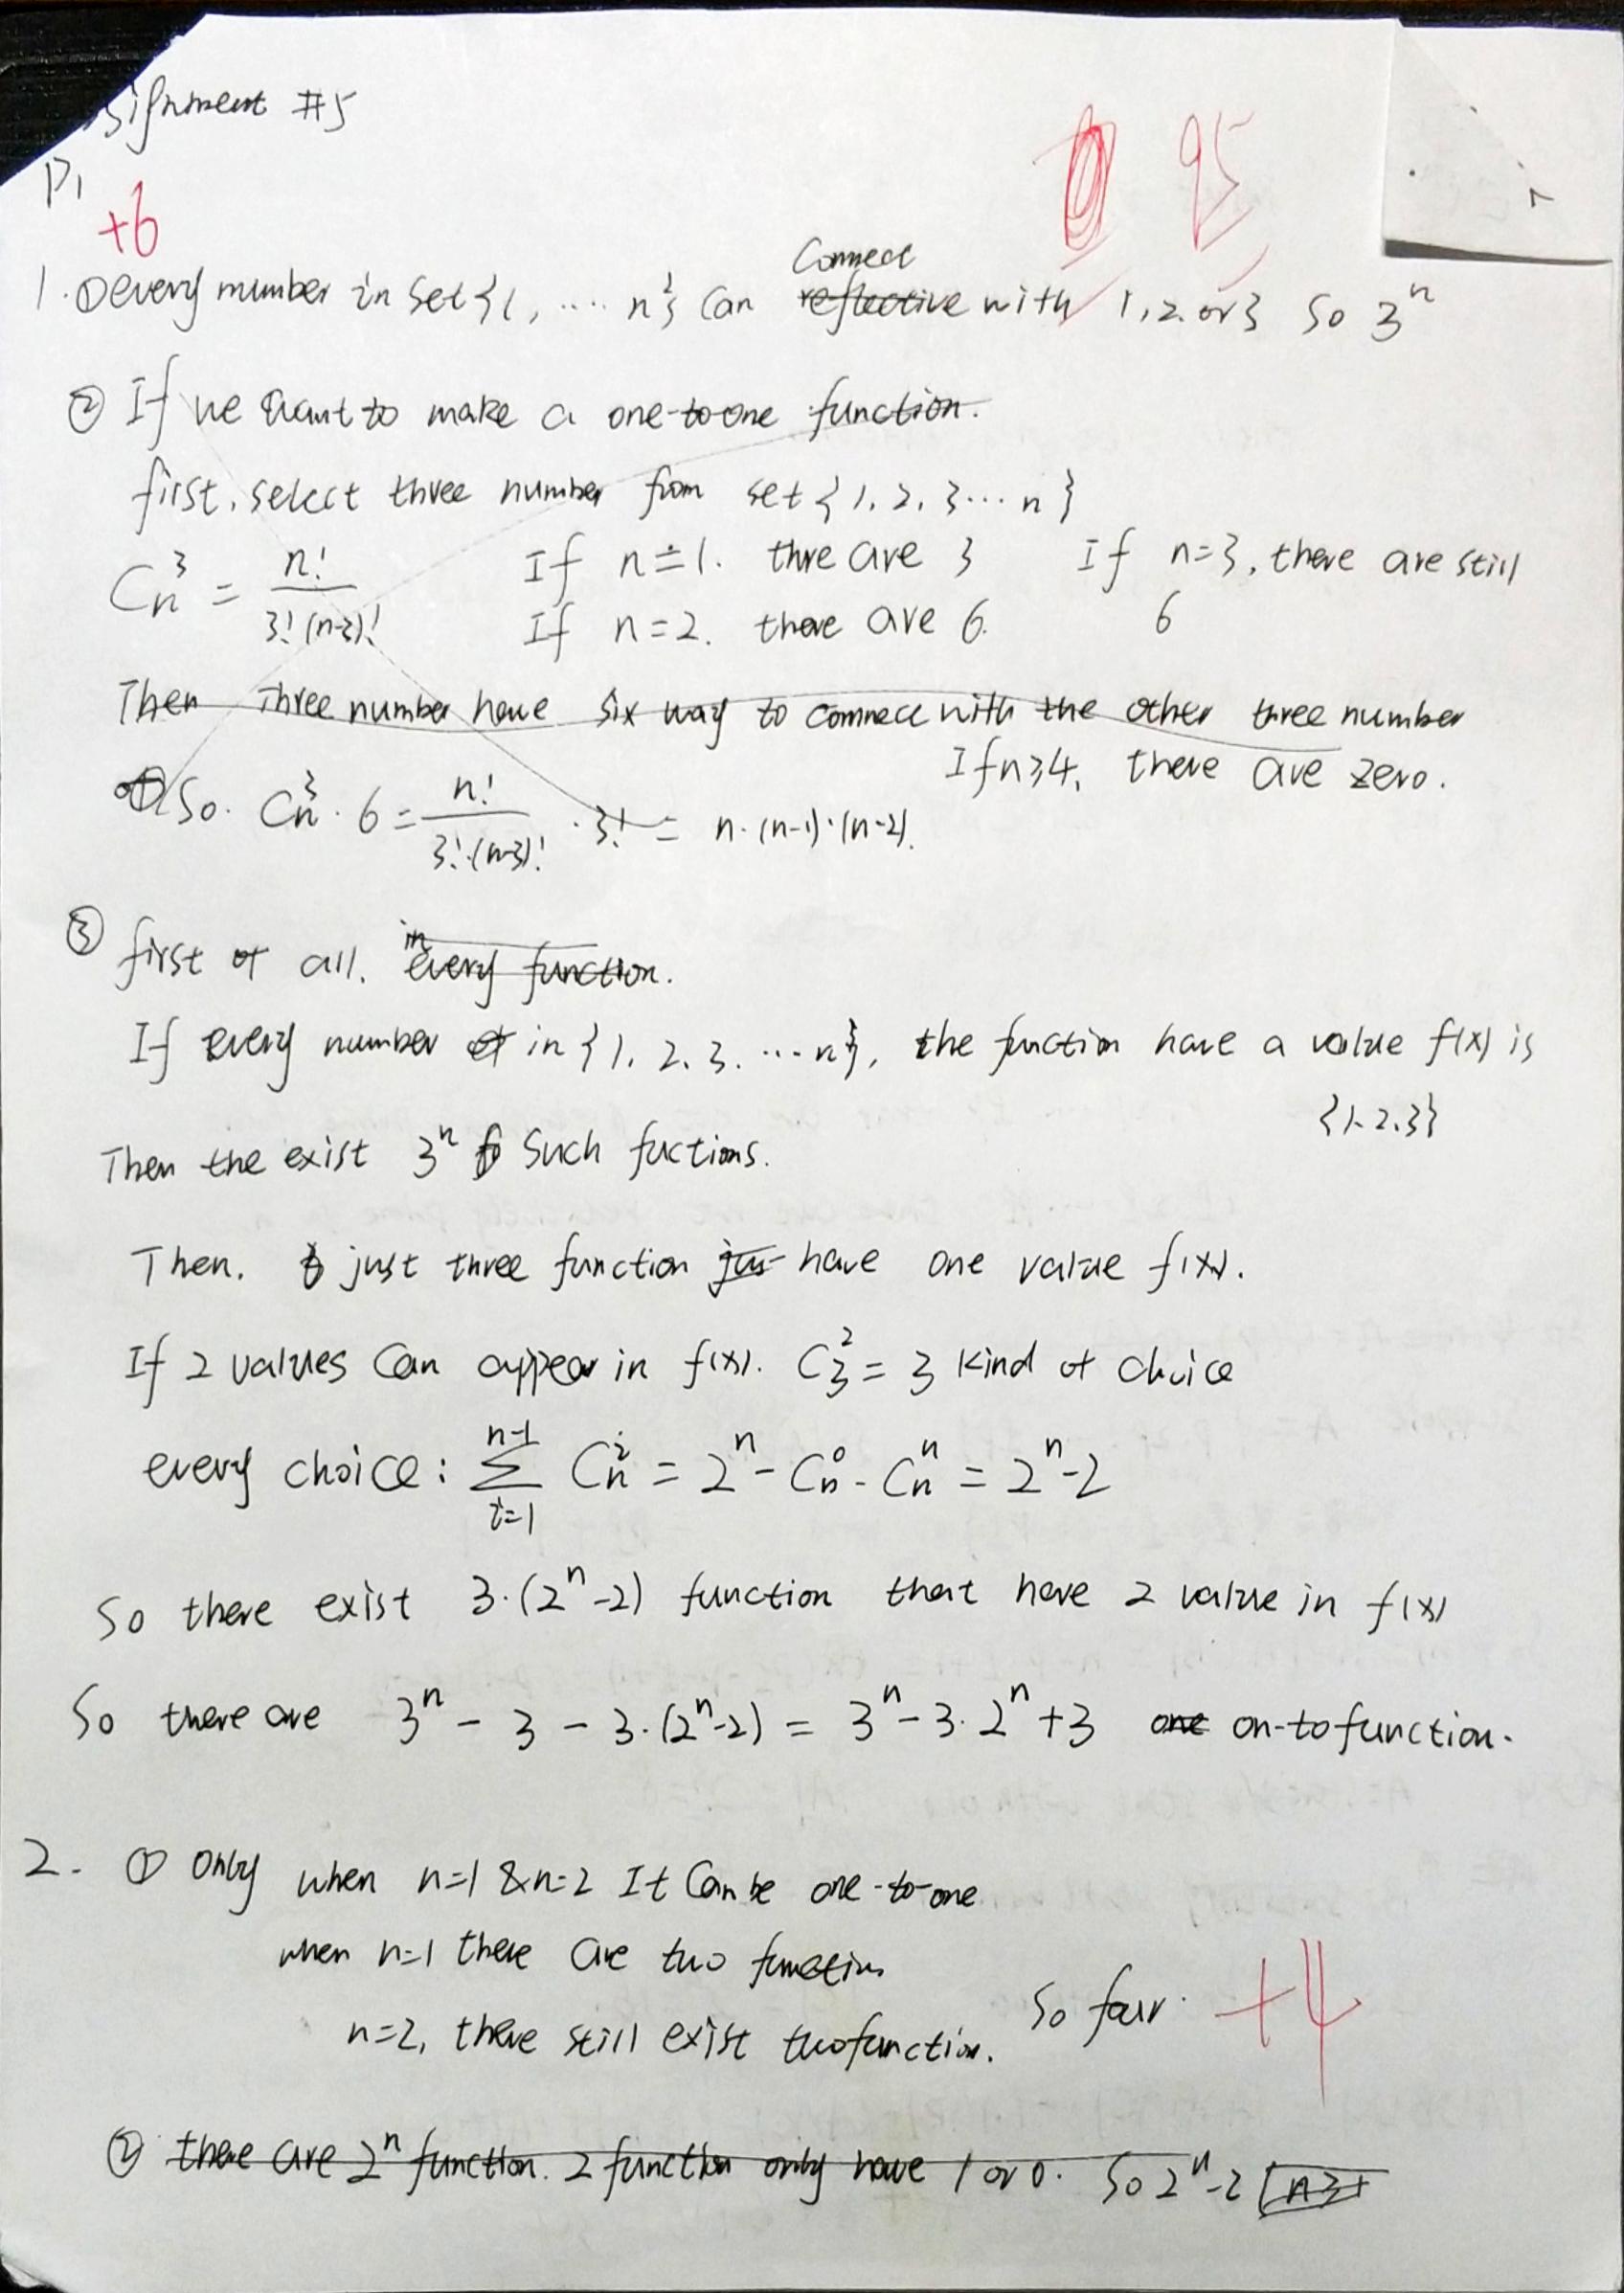 signment #5
P1
+6
95
1. ① every number in set {1, ..... n} can reflective Connect with 1, 2. or 3 So 3^n
② If we want to make a one-to-one function.
first. select three number from set {1. 2. 3... n}
C_n^3 = n!/3!(n-3)!
If n=1. thre are 3
If n=2. there are 6.
If n=3, there are still 6
Then three number have six way to connect with the other three number
If n≥4, there are zero.
So. C_n^3 · 6 = n!/3!·(n-3)! · 3! = n·(n-1)·(n-2).
③ first of all. in every function.
If every number in {1. 2. 3. ...n}, the function have a value f(x) is {1. 2. 3}
Then the exist 3^n Such fuctions.
Then. just three function jus have one value f(x).
If 2 values Can appear in f(x). C_3^2 = 3 kind of choice
every choice: ∑_{i=1}^{n-1} C_n^i = 2^n - C_n^0 - C_n^n = 2^n-2
So there exist 3·(2^n-2) function that have 2 value in f(x)
So there are 3^n - 3 - 3·(2^n-2) = 3^n - 3·2^n + 3 one on-to function.
2. ① Only when n=1 & n=2 It Can be one-to-one
when n=1 there are two function
n=2, there still exist two function.
So four. +4
② there are 2^n function. 2 function only have 1 or 0. So 2^n-2